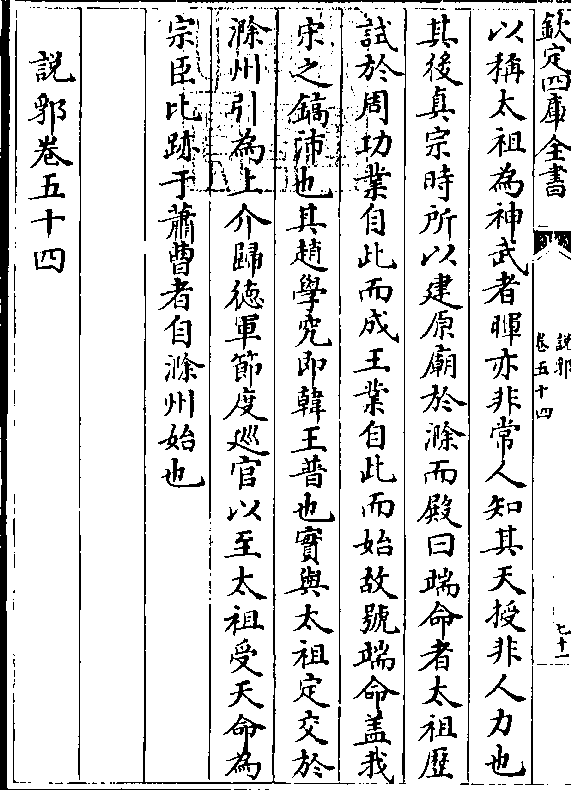 欽定四庫全書
說郛
卷五十四
七十一
以稱太祖為神武者暉亦非常人知其天授非人力也
其後真宗時所以建原廟於滁而殿曰端命者太祖歷
試於周功業自此而成王業自此而始故號端命盖我
宋之鎬沛也其趙學究即韓王普也實與太祖定交於
滁州引為上介歸徳軍節度廵官以至太祖受天命為
宗臣比跡于蕭曹者自滁州始也
說郛卷五十四